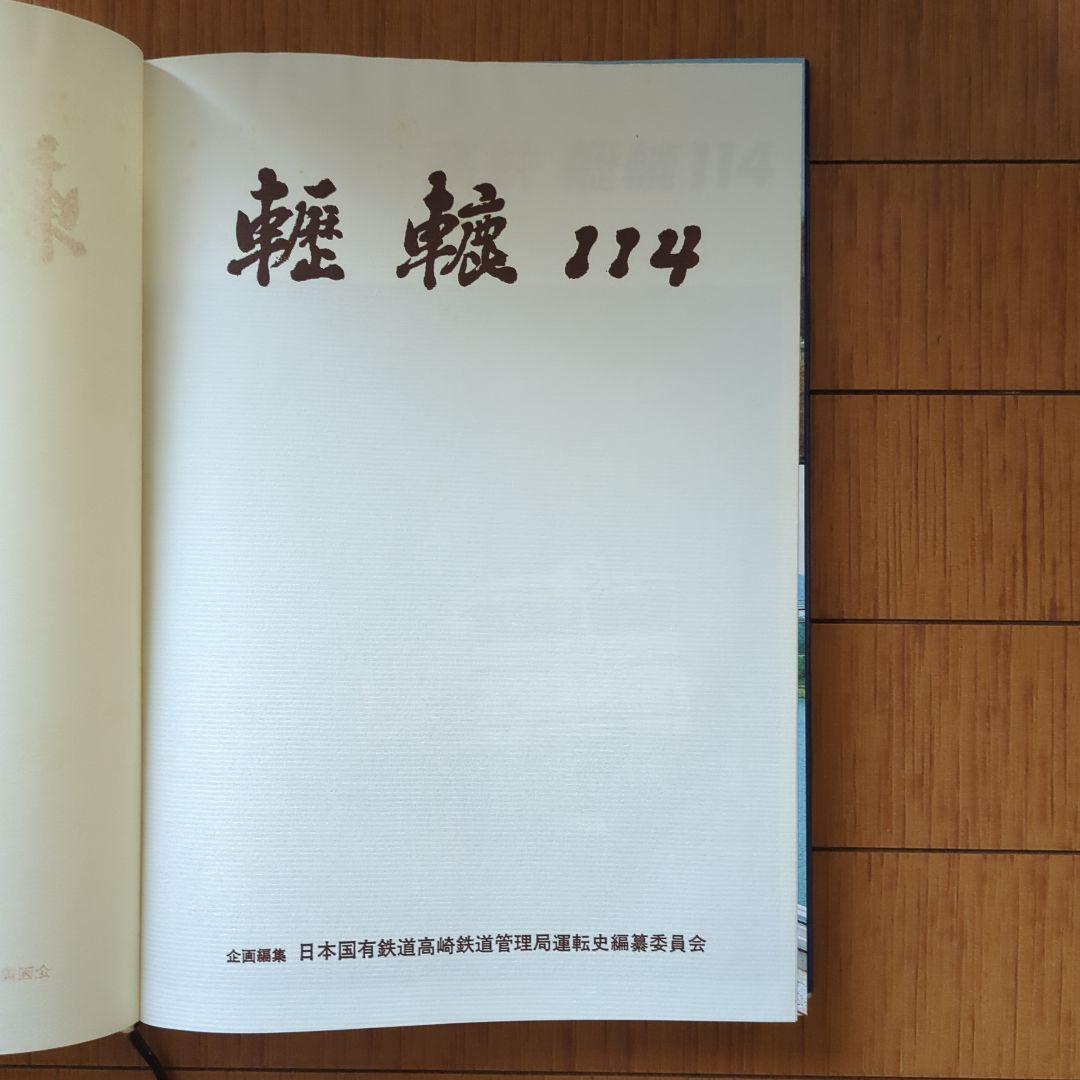 轣轆114
企画編集 日本国有鉄道高崎鉄道管理局運転史編纂委員会